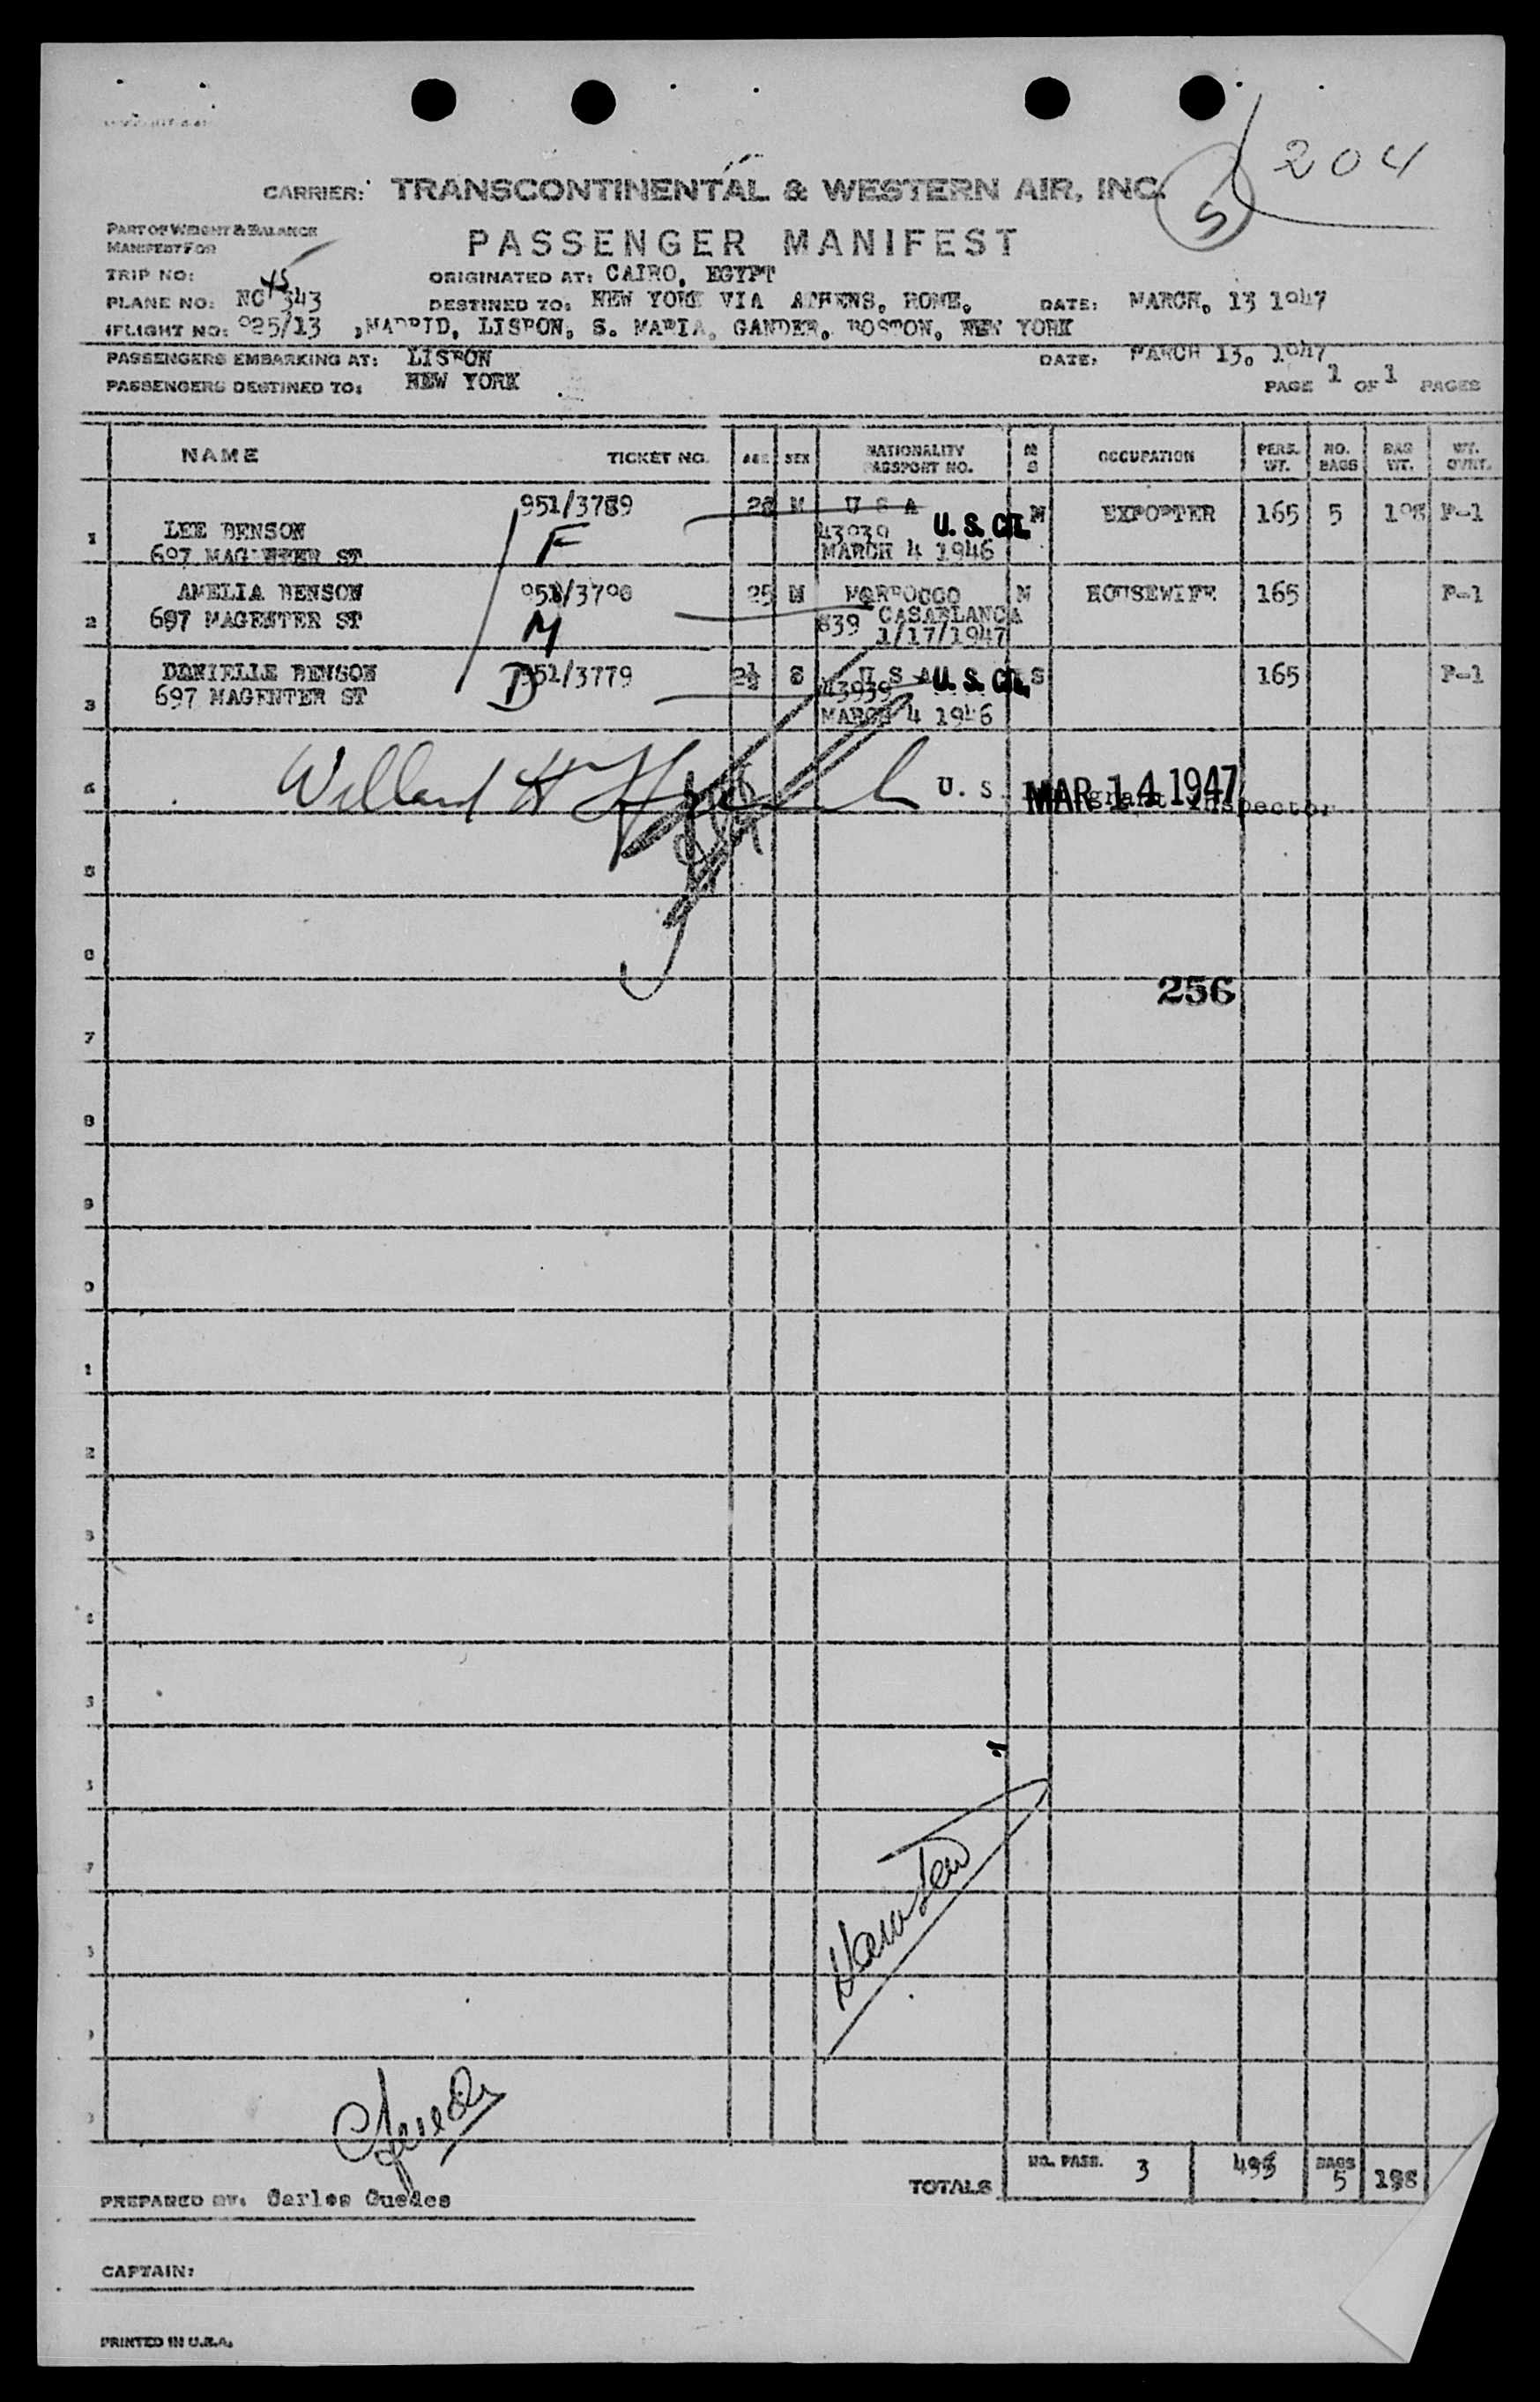 204
5
CARRIER: TRANSCONTINENTAL & WESTERN AIR, INC.
PART OF WEIGHT & BALANCE
MANIFEST FOR
PASSENGER MANIFEST
TRIP NO:
ORIGINATED AT: CAIRO, EGYPT
PLANE NO: NC 45343
DESTINED TO: NEW YORK VIA ATHENS, ROME, DATE: MARCH, 13 1947
FLIGHT NO: 925/13 ,MADRID, LISBON, S. MARIA, GANDER, BOSTON, NEW YORK
PASSENGERS EMBARKING AT: LISBON DATE: MARCH 13, 1947
PASSENGERS DESTINED TO: NEW YORK
PAGE 1 OF 1 PAGES
NAME TICKET NO. AGE SEX NATIONALITY PASSPORT NO. M S OCCUPATION PERS. WT. NO. BAGS BAG WT. WT. OVWT.
951/3789 28 M U S A M EXPORTER 165 5 198 F-1
1 LEE BENSON F 43939 U. S. CIT.
697 MAGENTER ST MARCH 4 1946
AMELIA BENSON 951/3790 25 M MORROCCO M HOUSEWIFE 165 F-1
2 697 MAGENTER ST M 839 CASABLANCA
1/17/1947
DANIELLE BENSON D 951/3779 2½ S U S A U. S. CIT. S 165 F-1
3 697 MAGENTER ST 43939
MARCH 4 1946
Willard H
U. S. Immigrant Inspector
MAR 14 1947
5
6
256
7
8
9
TOTALS NO. PASS. 3 495 BAGS 5 198
PREPARED BY: Carlos Guedes
CAPTAIN:
PRINTED IN U.S.A.